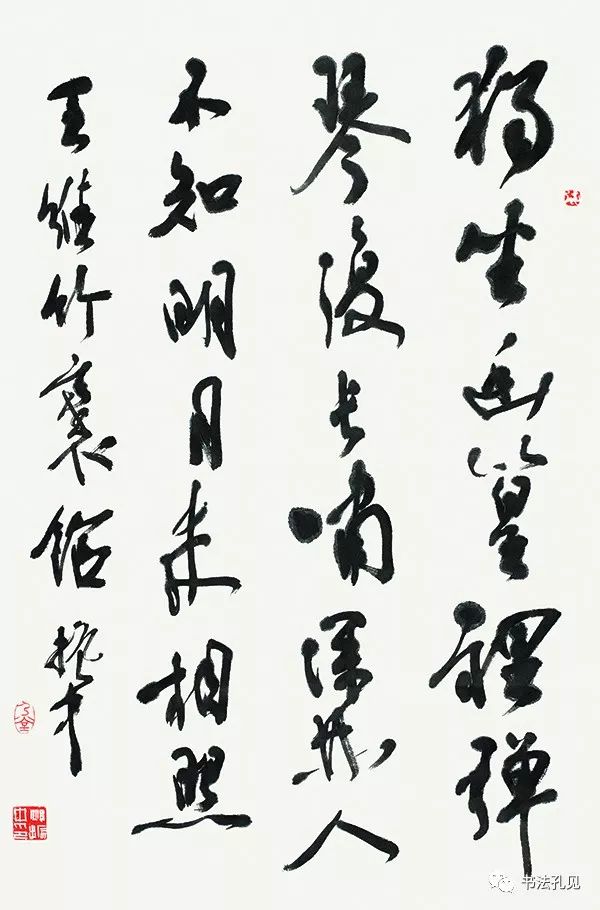 獨坐幽篁裡彈
琴復長嘯深林人
不知明月来相照
王維竹裏館
书法孔见